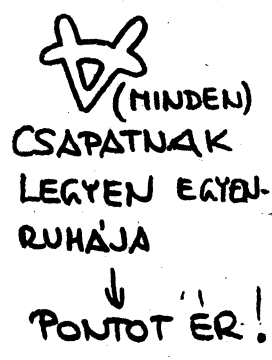 (MINDEN)
CSAPATNAK
LEGYEN EGYEN-
RUHÁJA
PONTOT ÉR!